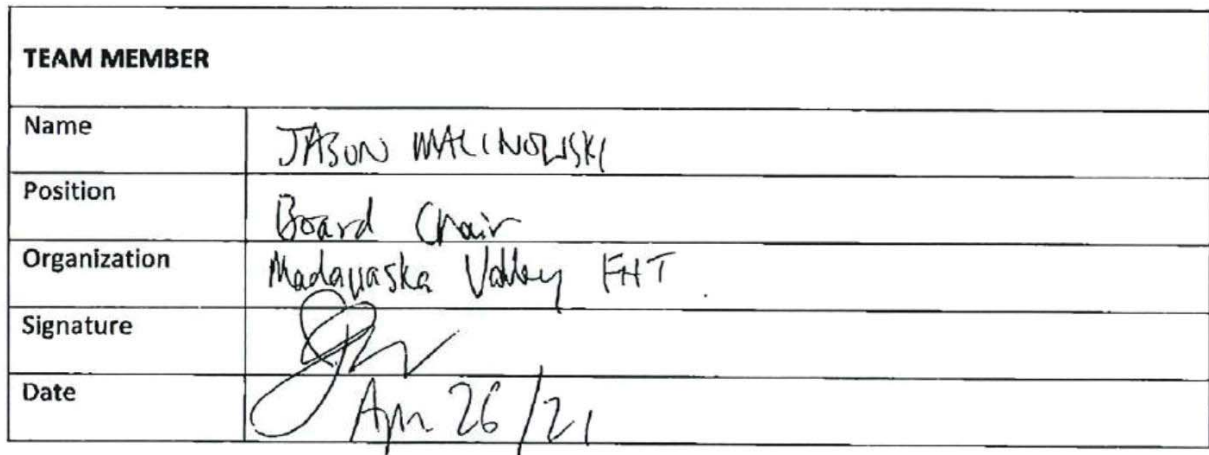 TEAM MEMBER
Name JASON MALINOWSKI
Position Board Chair
Organization Madawaska Valley FHT.
Signature
Date Apr 26/21